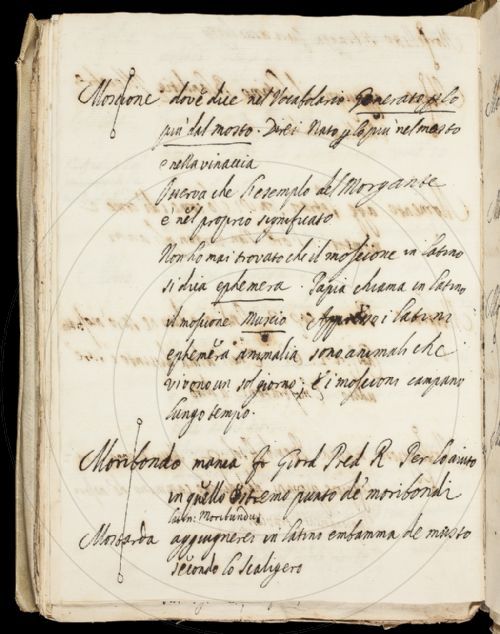 Moscione dov'è dice nel Vocabolario Generato p lo
più dal mosto. Direi Nato p lo più nel mosto
e nella vinaccia
Osserva che l'esempio del Morgante
è nel proprio significato
Non ho mai trovato che il moscione in latino
si dica ephemera. Papia chiama in latino
il moscione Muscio. Appresso i latini
ephemera animalia sono animali che
vivono un sol giorno, e i moscioni campano
lungo tempo.
Moribondo manca Fr Giord Pred R Per lo aiuto
in quello estremo punto de' moribondi
Latin: Moribundus
Mostarda aggiugnerei in latino embamma de musto
secondo lo Scaligero